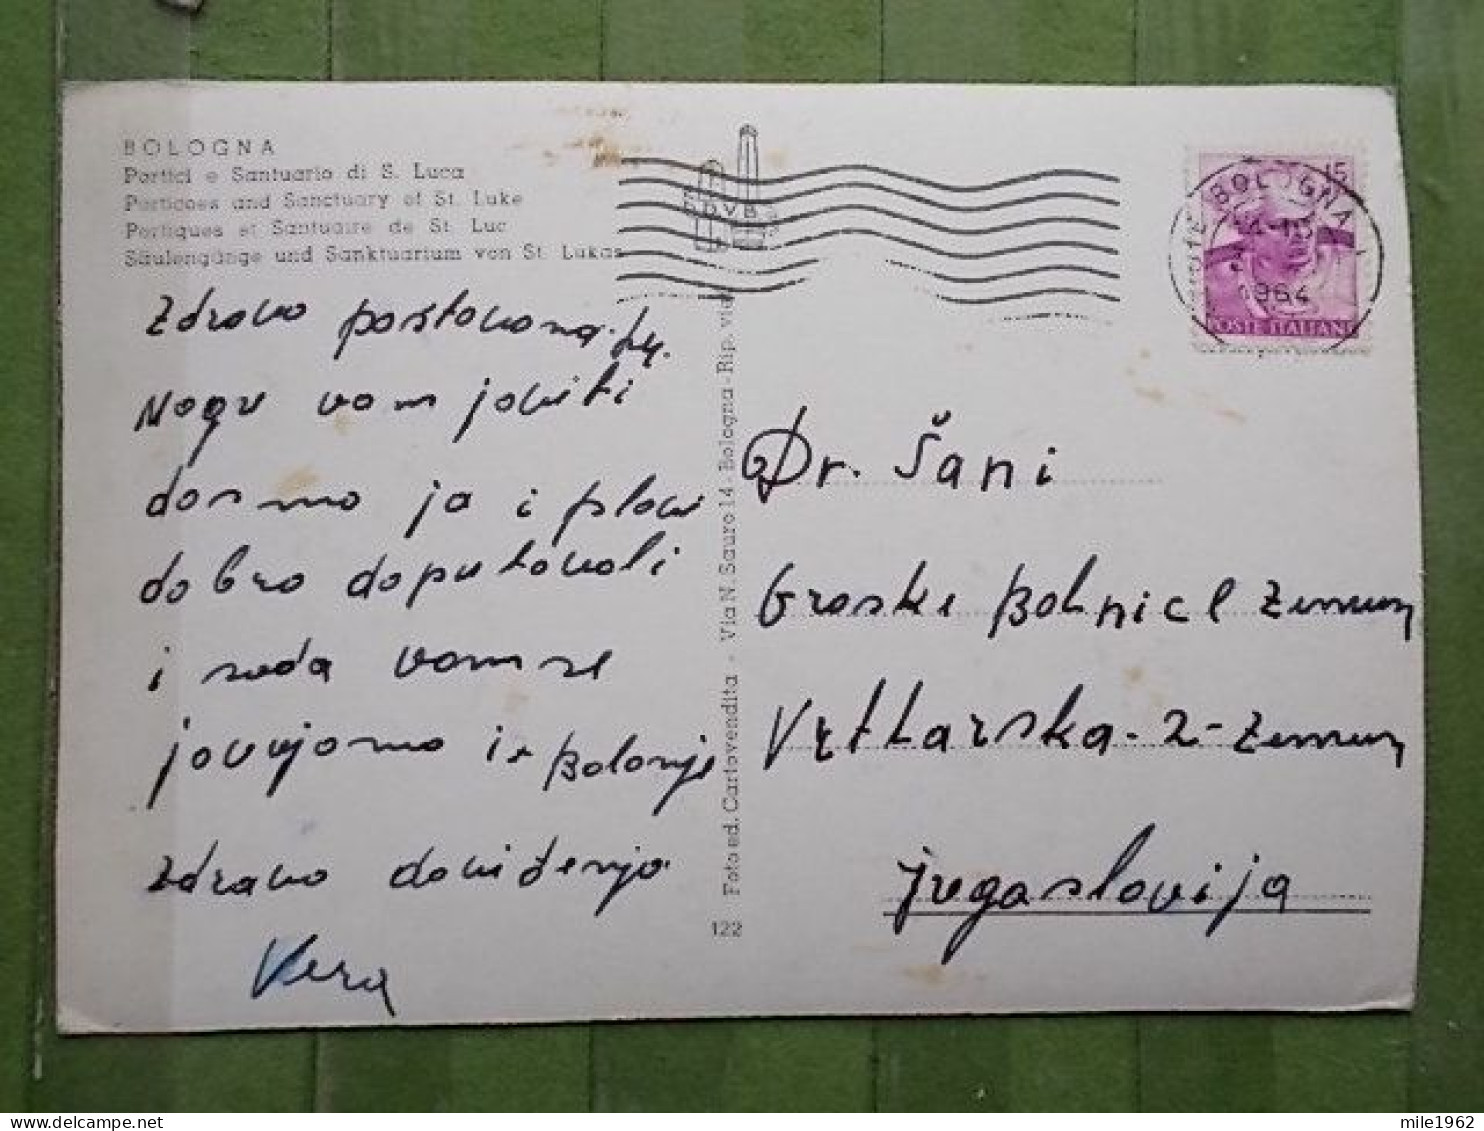 BOLOGNA
Portici e Santuario di S. Luca
Porticoes and Sanctuary of St. Luke
Portiques et Santuaire de St. Luc
Säulengänge und Sanktuarium von St. Lukas
Zdravo poštovana
Mogu vam javiti
da smo ja i
dobro doputovali
i sada vam se
javljamo iz Bolonje
Zdravo doviđenja
Vera
122
Foto ed. Cartovendita - Via N. Sauro 14 - Bologna - Rip. viet
15
BOLOGNA
1964
POSTE ITALIANE
Dr. Šani
Graske Bolnice Zemun
Vrtlarska - 2 - Zemun
Jugoslavija
mile1962